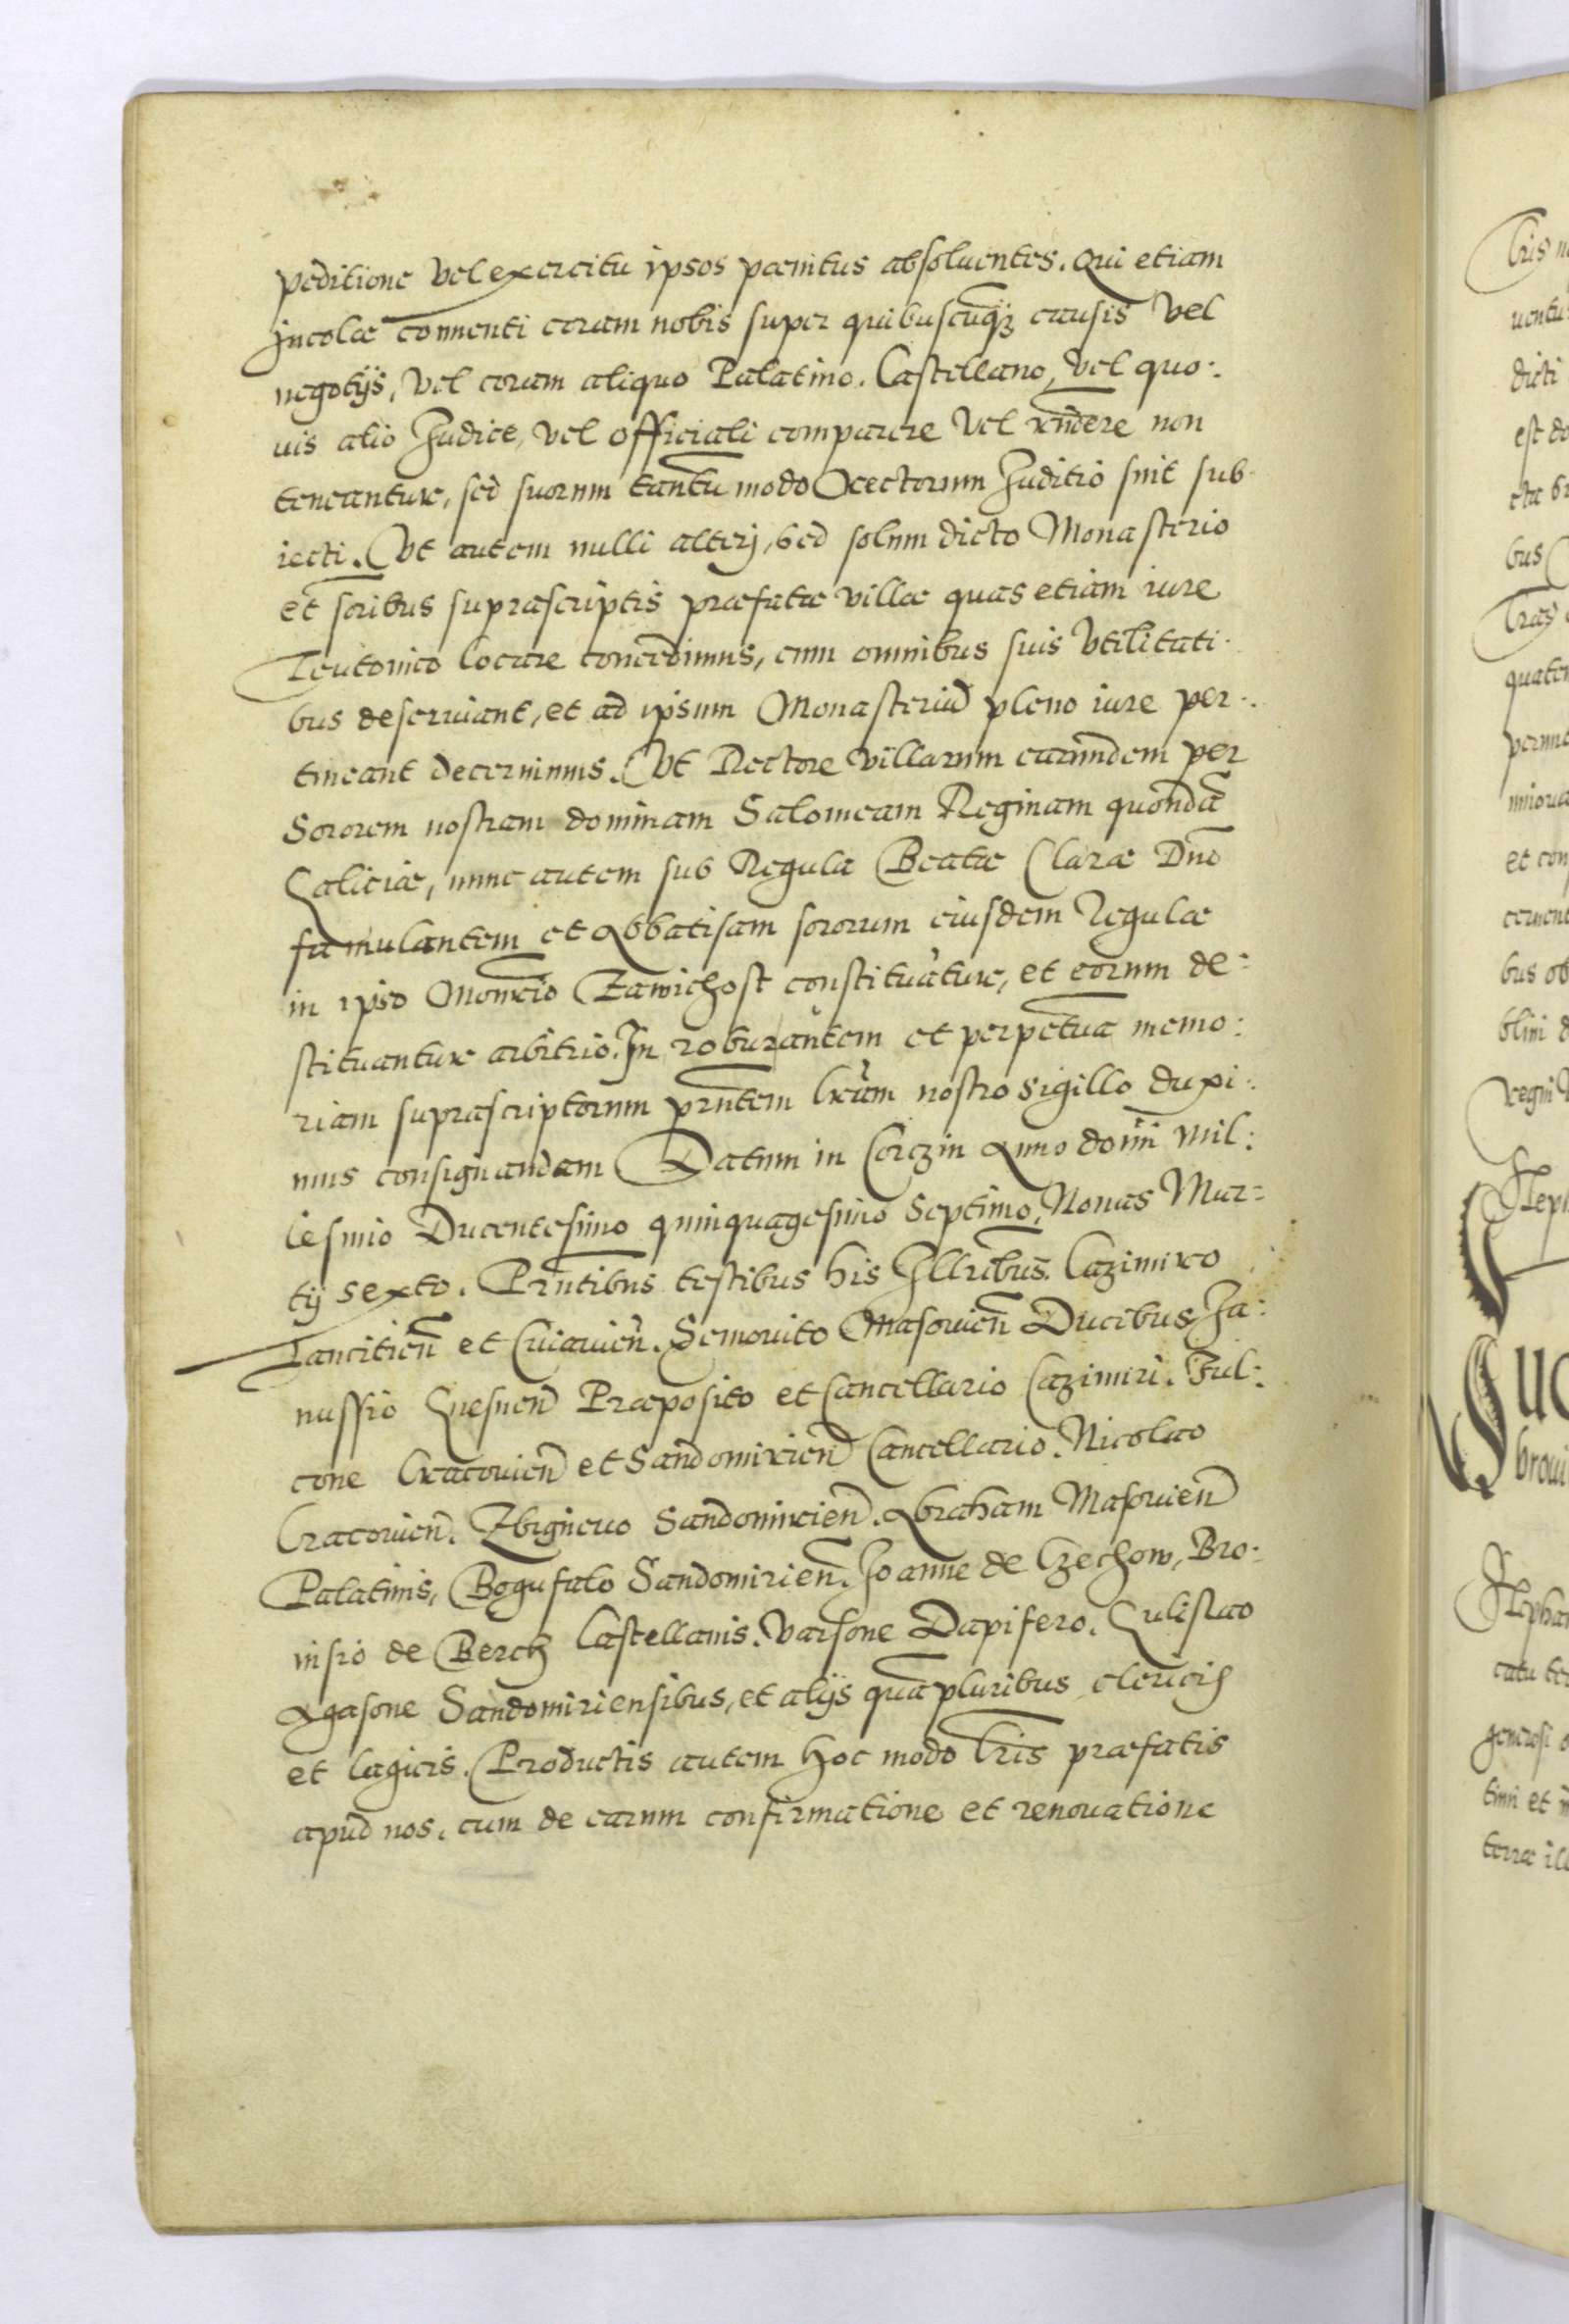 peditione vel exercitu ipsos pœnitus absoluentes. Qui etiam
Incolæ conuenti coram nobis super quibuscūq; causis vel
negotÿs, vel coram aliquo Palatino. Castellano, vel quo:
uis alio Judice, vel officiali comparere vel rn̄dere non
teneantur, sed suorum tantū modo Rectorum Juditio sint sub
iecti. Vt autem nulli alterj, sed solum dicto Monasterio
et soribus suprascriptis præfatæ villæ quas etiam iure
Teutonico locare concedimus, cum omnibus suis vtilitati
bus deseruiant, et ad ipsum Monasteriū pleno iure per:
tineant decernimus. Vt Rectore villarum earumdem per
Sororem nostram dominam Salomeam Reginam quondā
Galiciæ, nunc autem sub Regula Beatæ Claræ Dn̄o
famulantem et Abbatisam sororum eiusdem Regulæ
in ipso Monrio Zawichost constituātur, et eorum de:
stituantur arbitrio. In robur autem et perpetua memo:
riam suprascriptorum prn̄tem lrām nostro sigillo duxi:
mus consignandam Datum in Corczin Anno domī Mil:
lesimo Ducentesimo quinquagesimo Septimo, Nonas Mar:
tÿ sexto. Prn̄tibus testibus his Illribus. Cazimiro
Lancitien̄ et Cuiauien̄. Semouito Masouien̄ Ducibus Ja:
nussio Gnesnen̄ Præposito et Cancellario Cazimiri. Ful:
cone Cracouien̄ et Sandomirien̄ Cancellario. Nicolao
Cracouien̄. Zbigneuo Sandomirien̄. Abraham Masouien̄
Palatinis, Bogufalo Sandomirien̄. Joanne de Czechow, Bro:
nisio de Berch Castellanis. Varsone Dapifero. Gulislao
Agasone Sandomiriensibus, et alÿs quā pluribus clericis
et lagicis. Productis autem hoc modo lris præfatis
apud nos, cum de earum confirmatione et renouatione